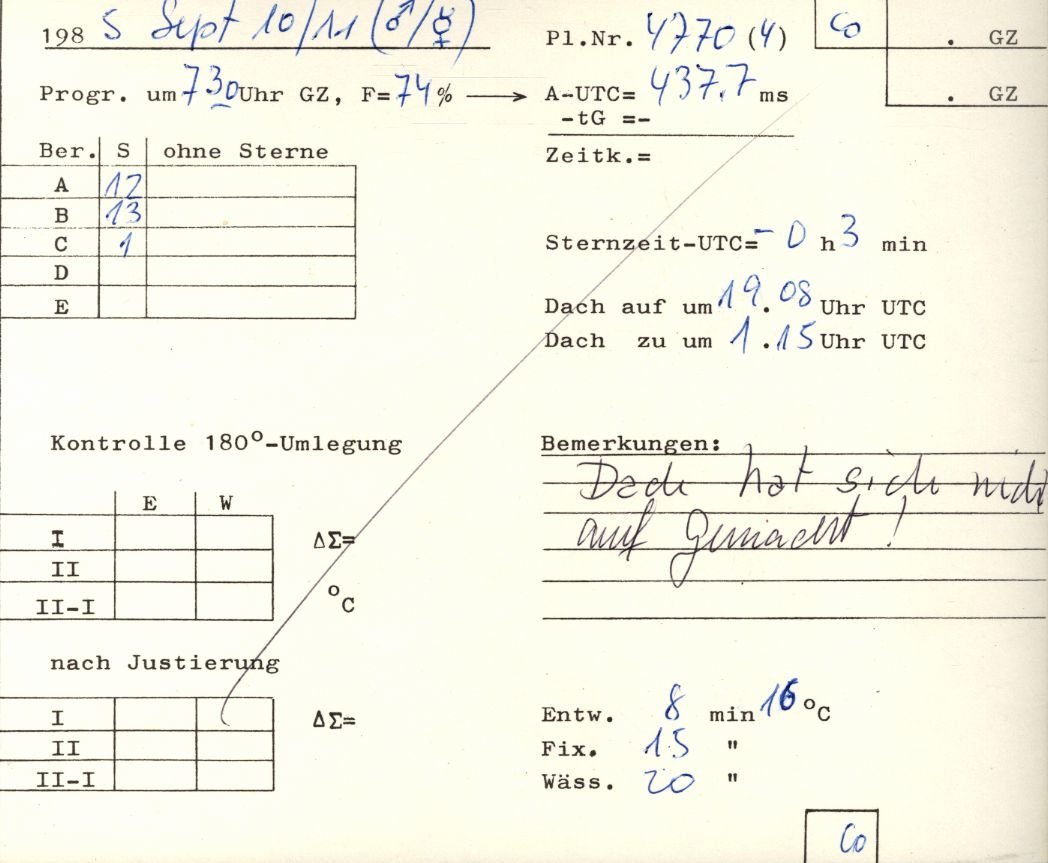 198 5 Sept 10/11 (♂/☿)
Pl.Nr. 4770 (4)
Co . GZ
Progr. um 730 Uhr GZ, F= 74 % → A-UTC= 437.7 ms
. GZ
-tG =-
Zeitk.=
Ber. S ohne Sterne
A 12
B 13
C 1
D
E
Sternzeit-UTC= - 0 h 3 min
Dach auf um 19.08 Uhr UTC
Dach zu um 1.15 Uhr UTC
Kontrolle 180°-Umlegung
E W
I ΔΣ=
II
II-I °C
nach Justierung
I ΔΣ=
II
II-I
Bemerkungen:
Dach hat sich nicht
auf gemacht!
Entw. 8 min 16 °C
Fix. 15 "
Wäss. 20 "
Co